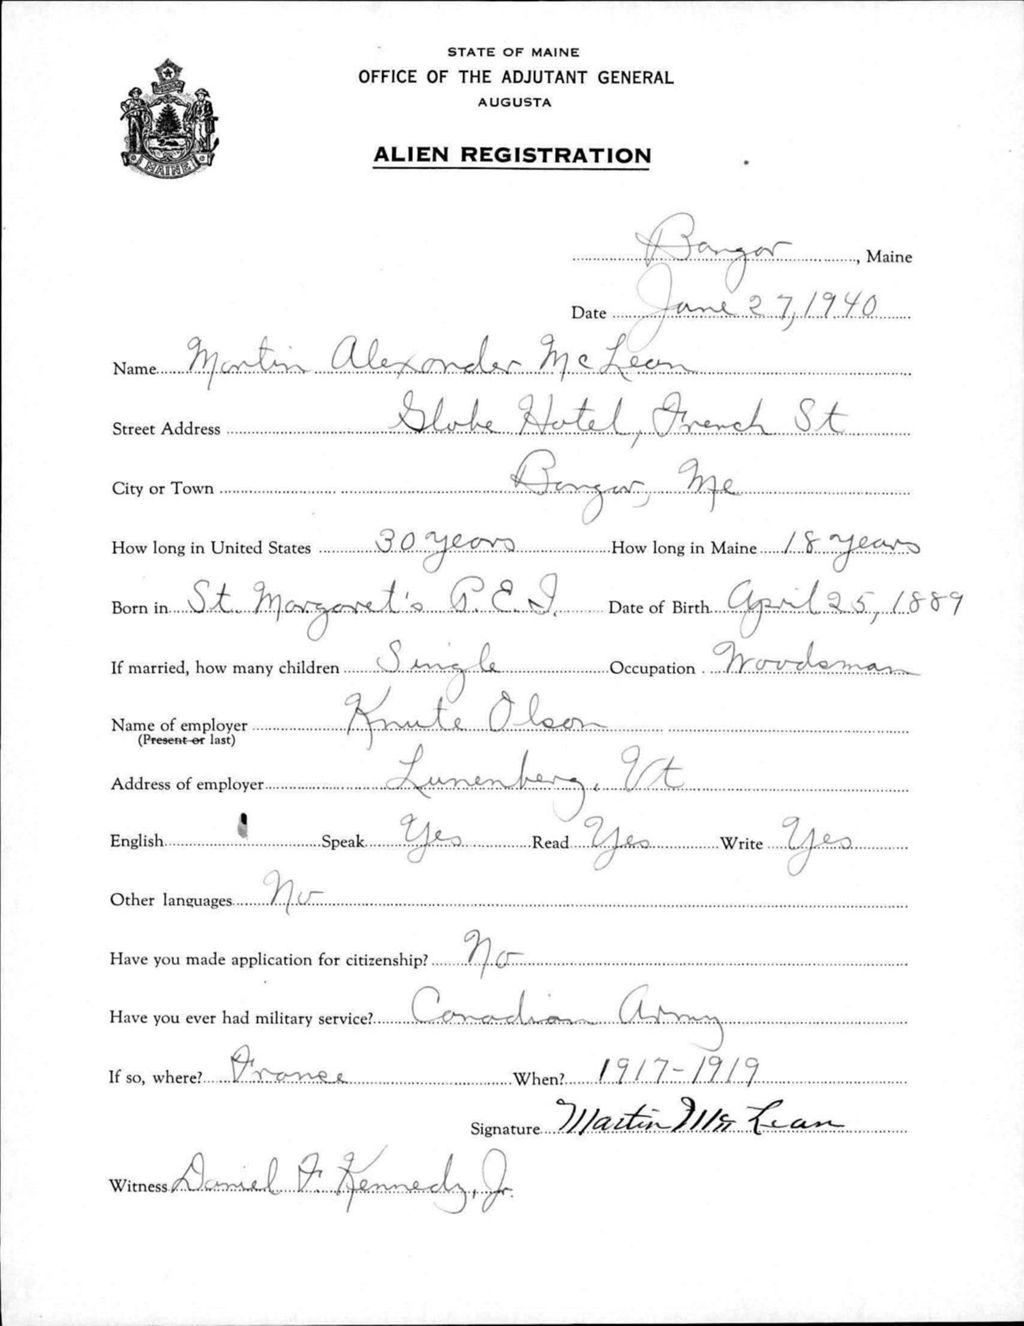 STATE OF MAINE
OFFICE OF THE ADJUTANT GENERAL
AUGUSTA
ALIEN REGISTRATION
MAINE
Bangor, Maine
Date June 27, 1940
Name Martin Alexander McLean
Street Address Globe Hotel, French St
City or Town Bangor, Me
How long in United States 30 years How long in Maine 18 years
Born in St. Margaret's P.E.I. Date of Birth April 25, 1889
If married, how many children Single Occupation Woodsman
Name of employer Knute Olson
(Present or last)
Address of employer Lunenberg, Vt
English Speak Yes Read Yes Write Yes
Other languages No
Have you made application for citizenship? No
Have you ever had military service? Canadian Army
If so, where? France When? 1917-1919
Signature Martin McLean
Witness Daniel F. Kennedy, Jr.